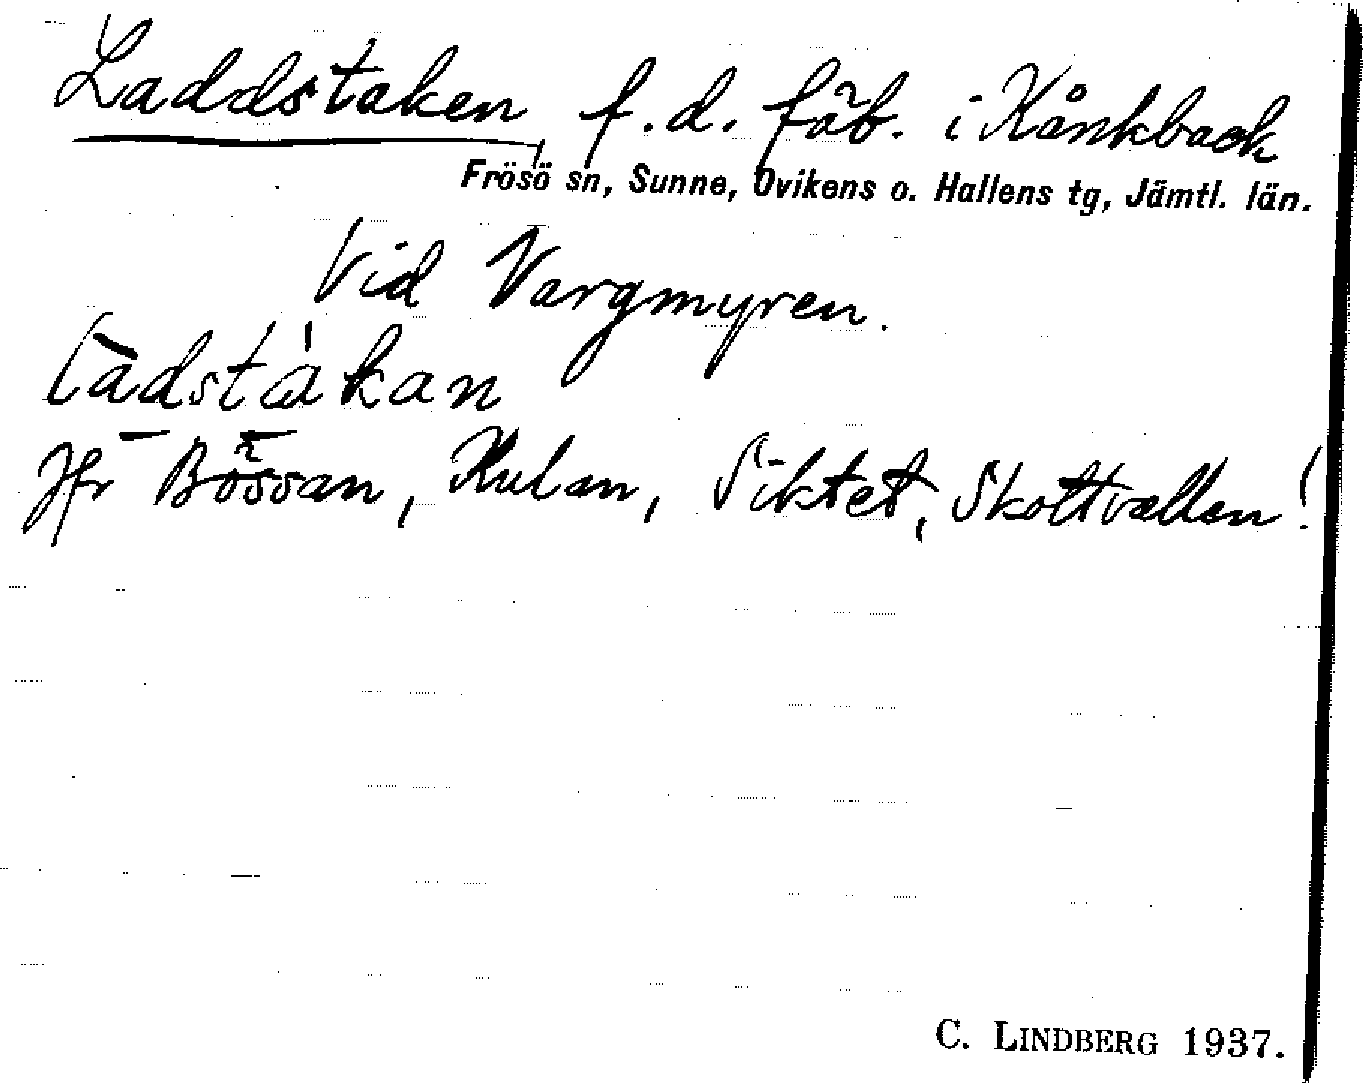 Laddstaken, f.d. fäb. i Kånkback
Frösö sn, Sunne, Ovikens o. Hallens tg, Jämtl. län.
Vid Vargmyren.
ladstakan
Jfr Bössan, Kulan, Siktet, Skottvallen!
C. LINDBERG 1937.